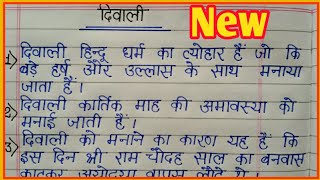 दिवाली
New
1) दिवाली हिन्दू धर्म का त्योहार है जो कि
बड़े हर्ष और उल्लास के साथ मनाया
जाता है।
2) दिवाली कार्तिक माह की अमावस्या को
मनाई जाती है।
3) दिवाली को मनाने का कारण यह है कि
इस दिन श्री राम चौदह साल का बनवास
काटकर अयोध्या वापस लौटे थे।